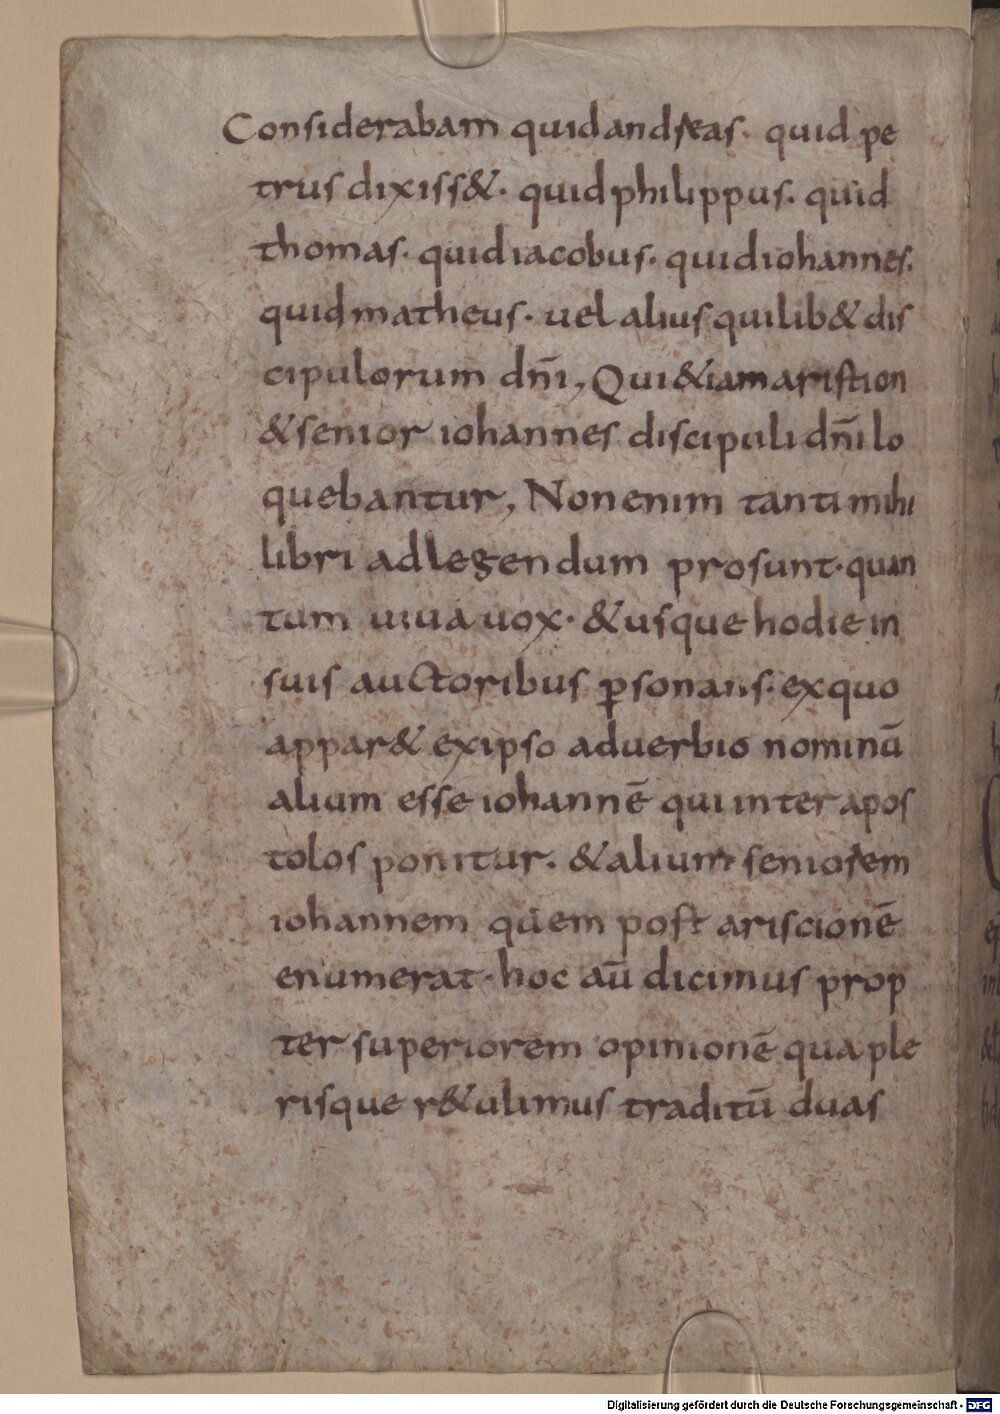 Considerabam quid andreas· quid pe
trus dixiss&· quid philippus· quid
thomas· quid iacobus· quid iohannes·
quid matheus· uel alius quilib& dis
cipulorum dn̄i, Qui &iam aristion
& senior iohannes discipuli dn̄i lo
quebantur, Non enim tanti mihi
libri ad legendum prosunt· quan
tum uiua uox· & usque hodie in
suis auctoribus ꝑsonans· ex quo
appar& ex ipso aduerbio nominū
alium esse iohannē qui inter apos
tolos ponitur· & alium seniorem
iohannem quem post ariscionē
enumerat· hoc aū dicimus prop
ter superiorem opinionē qua ple
risque r&ulimus traditū duas
Digitalisierung gefördert durch die Deutsche Forschungsgemeinschaft - DFG